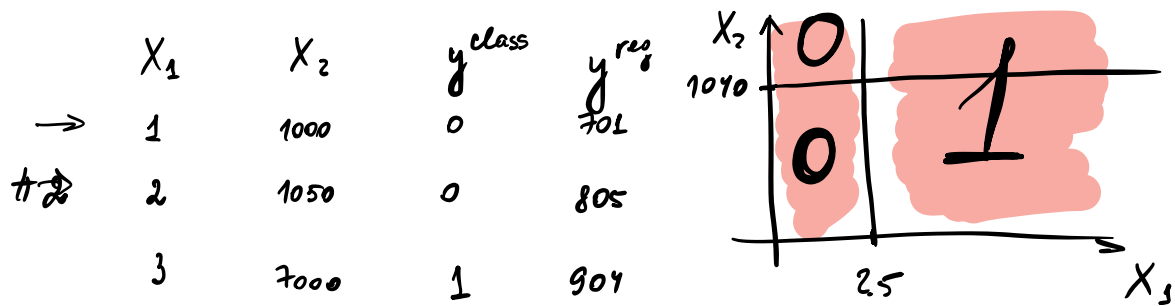 X₁ X₂ y^class y^reg
→ 1 1000 0 701
#2 → 2 1050 0 805
3 7000 1 904
X₂ 0
1040 1
0
25 X₁